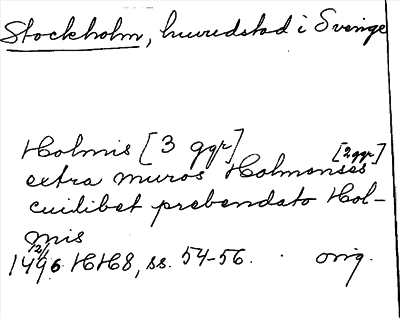 Stockholm, huvudstad i Sverige
Holmis [3 ggr]
extra muros Holmenses [2 ggr]
cuilibet prebendato Hol-
mis
12/1
1496. HH8, ss. 54-56. orig.